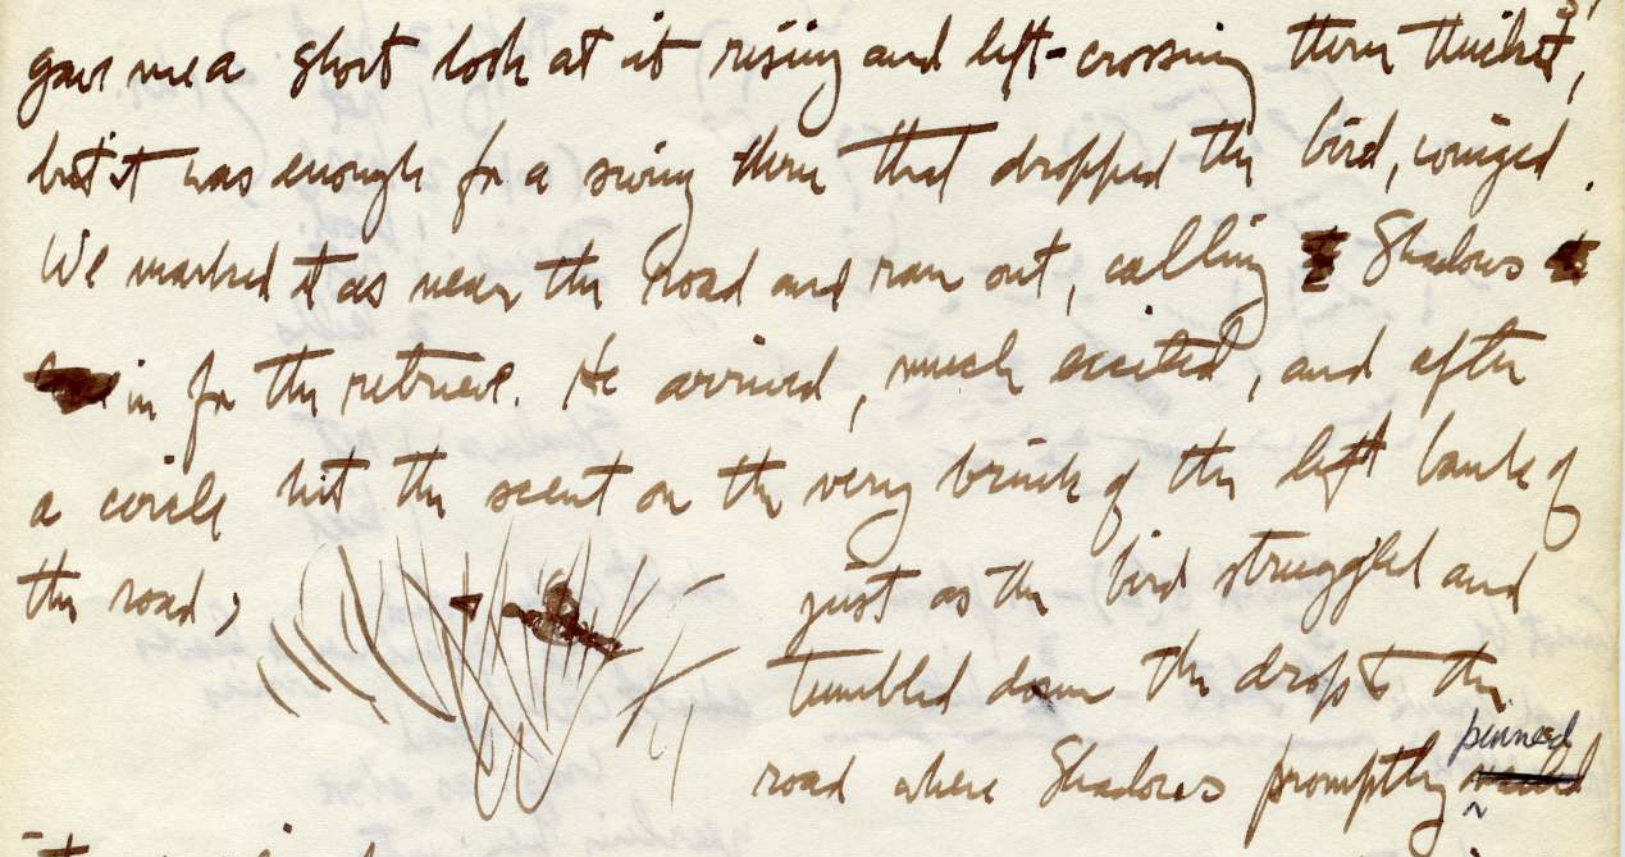 gave me a short look at it rising and left-crossing thru thicket,
but it was enough for a swing thru that dropped the bird, winged.
We marked it as near the road and ran out, calling Shadows
in for the retrieve. He arrived, much excited, and after
a circle hit the scent on the very brink of the left bank of
the road, just as the bird struggled and
tumbled down the drop to the
pinned
road where Shadows promptly